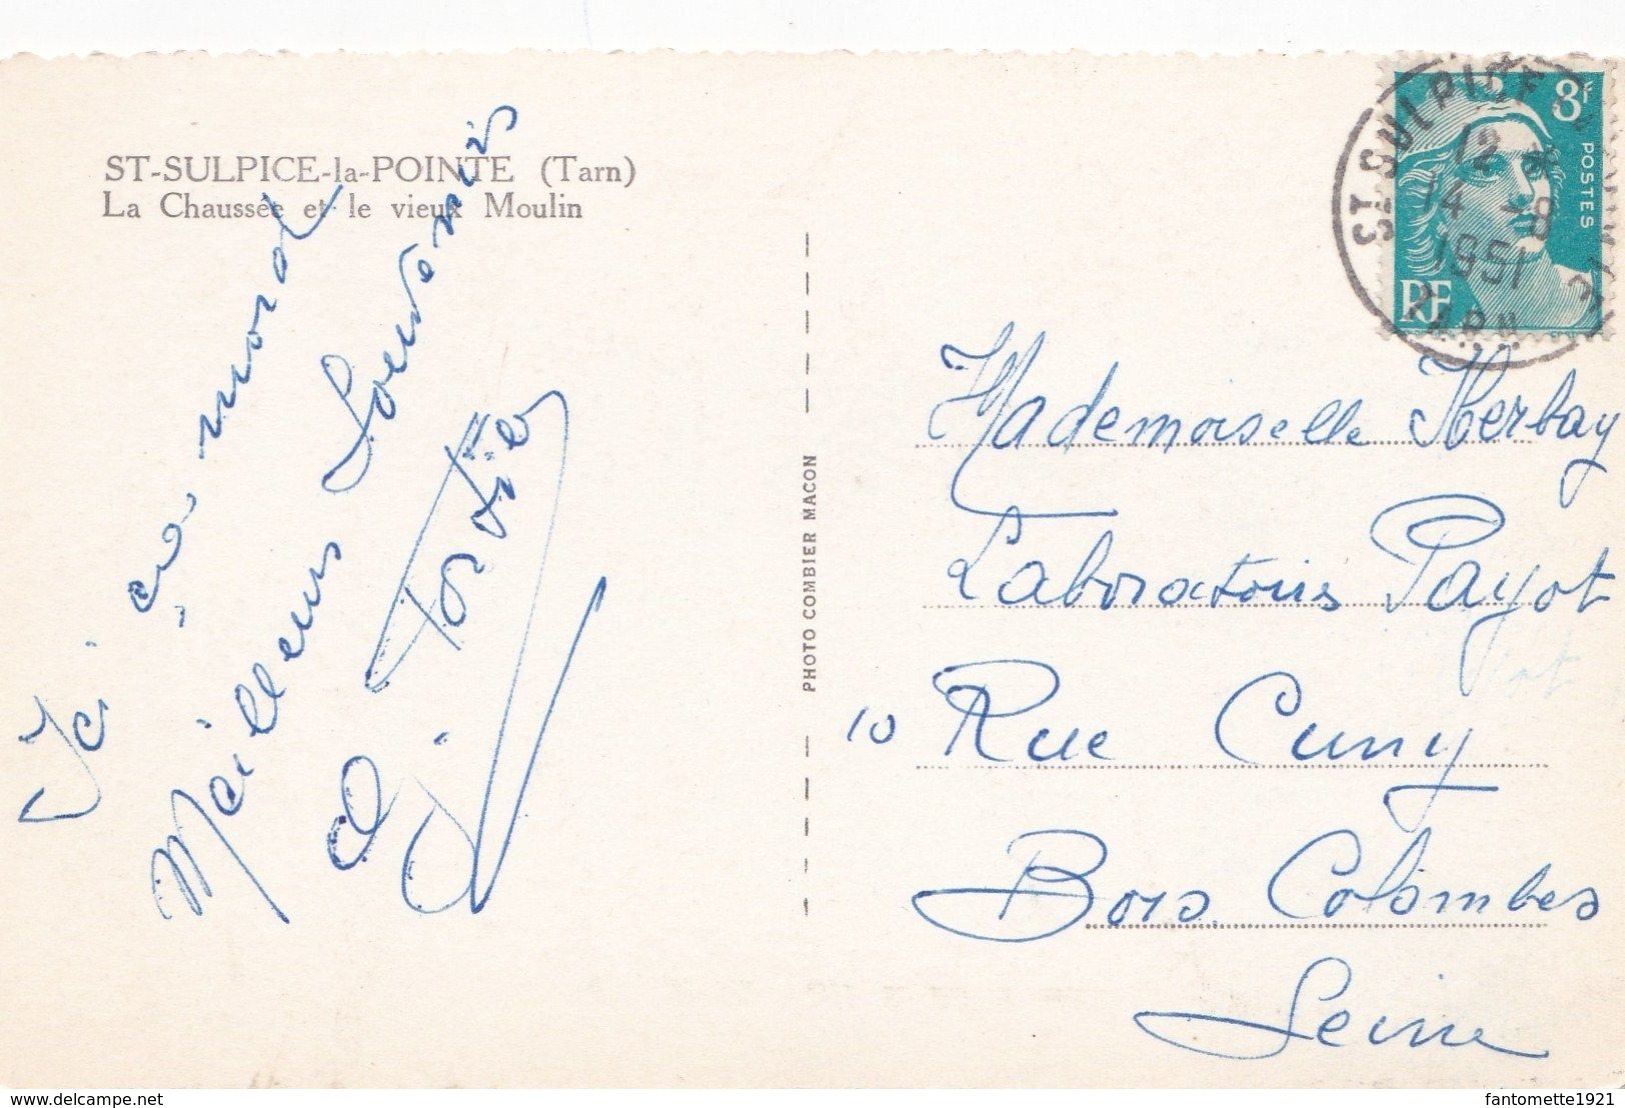 ST-SULPICE-la-POINTE (Tarn)
La Chaussée et le vieux Moulin
Ici ça mord
Meilleurs Souvenirs
PHOTO COMBIER MACON
3F
POSTES
RF
ST SULPICE
12 H
14 -8
1951
TARN
Mademoiselle Herbay
Laboratoires Payot
10 Rue Cuny
Bois Colombes
Seine
www.delcampe.net
fantomette1921